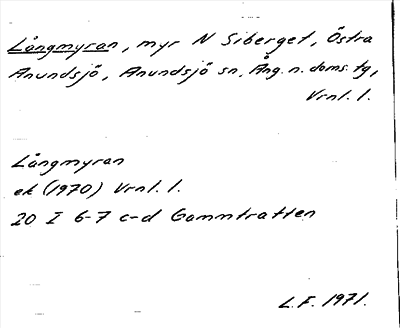 Långmyran, myr N Siberget, Östra
Anundsjö, Anundsjö sn, Ång. n. doms. tg,
Vrnl. l.
Långmyran
ek (1970) Vrnl. l.
20 I 6-7 c-d Gammtratten
L.F. 1971.